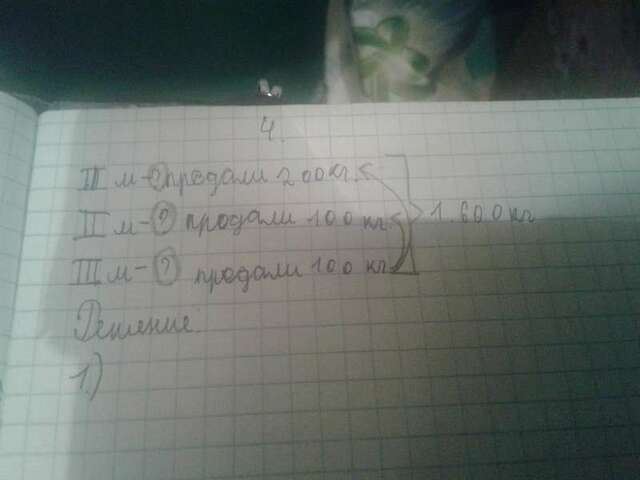 4.
III м-? продали 200кг <
II м-? продали 100 кг < 1.600кг
III м-? продали 100 кг
Решение:
1.)